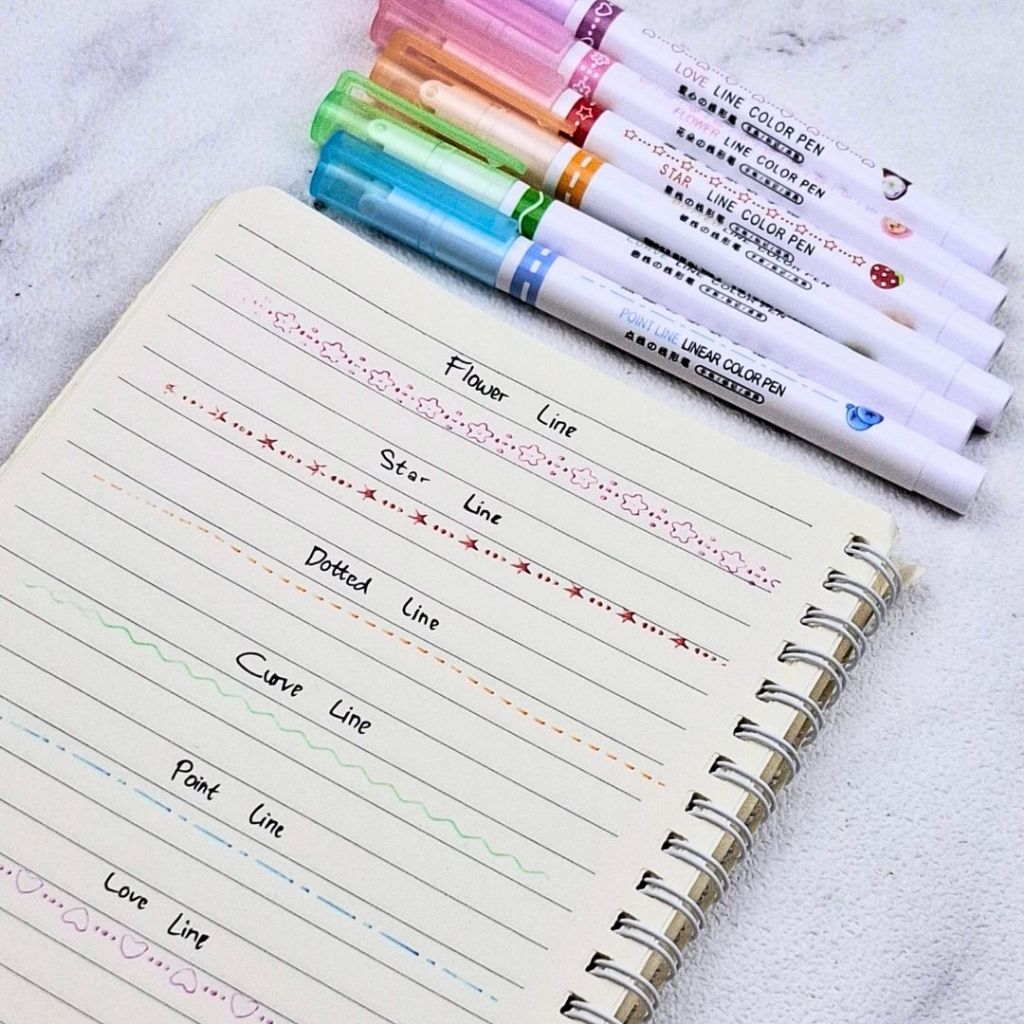 LOVE LINE COLOR PEN
爱心の线形笔
FLOWER LINE COLOR PEN
花朵の线形笔
STAR LINE COLOR PEN
星线の线形笔
LINE COLOR PEN
の线形笔
LINE COLOR PEN
の线形笔
POINT LINE LINEAR COLOR PEN
点线の线形笔
Flower Line
Star Line
Dotted Line
Curve Line
Point Line
Love Line